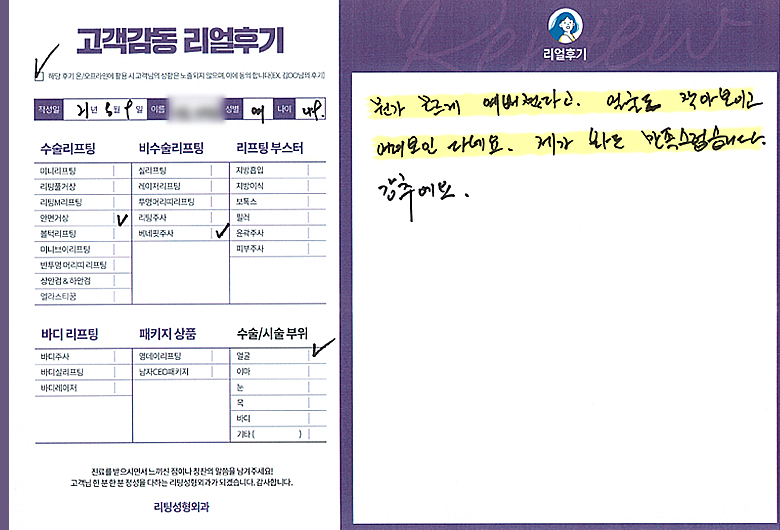 고객감동 리얼후기
해당 후기 온/오프라인에 활용 시 고객님의 성함은 노출되지 않으며, 이에 동의 합니다(EX. 김OO님의 후기)
작성일 21년 5월 9일 이름 성별 여 나이
수술리프팅 비수술리프팅 리프팅 부스터
미니리프팅 실리프팅 지방흡입
리팅풀거상 레이저리프팅 지방이식
리팅M리프팅 투명머리띠리프팅 보톡스
안면거상 리팅주사 필러
볼턱리프팅 베네핏주사 윤곽주사
미니브이리프팅 피부주사
반투명 머리띠 리프팅
상안검 & 하안검
엘라스티꿈
바디 리프팅 패키지 상품 수술/시술 부위
바디주사 원데이리프팅 얼굴
바디실리프팅 남자CEO패키지 이마
바디레이저 눈
목
바디
기타 ( )
진료를 받으시면서 느끼신 점이나 칭찬의 말씀을 남겨주세요!
고객님 한 분 한 분 정성을 다하는 리팅성형외과가 되겠습니다. 감사합니다.
리팅성형외과
Review
리얼후기
뭔가 예뻐졌다고. 얼굴도 작아보이고
어려보인 다네요. 제가 봐도 만족스럽습니다.
강추에요.